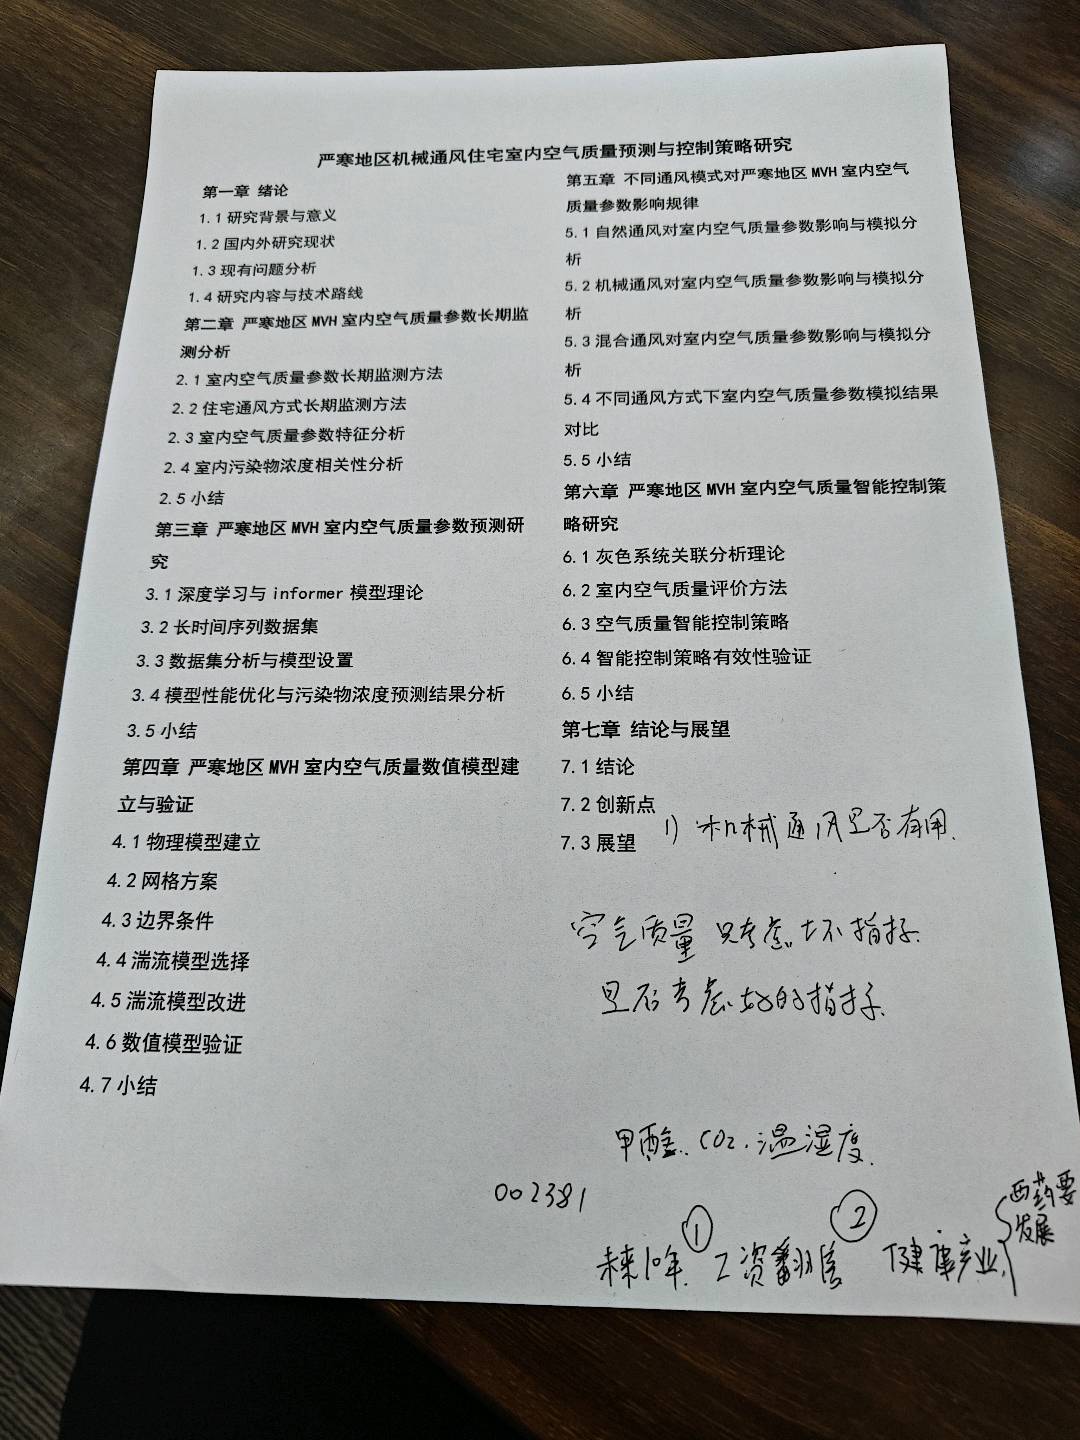 严寒地区机械通风住宅室内空气质量预测与控制策略研究
第一章 绪论
1.1 研究背景与意义
1.2 国内外研究现状
1.3 现有问题分析
1.4 研究内容与技术路线
第二章 严寒地区 MVH 室内空气质量参数长期监
测分析
2.1 室内空气质量参数长期监测方法
2.2 住宅通风方式长期监测方法
2.3 室内空气质量参数特征分析
2.4 室内污染物浓度相关性分析
2.5 小结
第三章 严寒地区 MVH 室内空气质量参数预测研
究
3.1 深度学习与 informer 模型理论
3.2 长时间序列数据集
3.3 数据集分析与模型设置
3.4 模型性能优化与污染物浓度预测结果分析
3.5 小结
第四章 严寒地区 MVH 室内空气质量数值模型建
立与验证
4.1 物理模型建立
4.2 网格方案
4.3 边界条件
4.4 湍流模型选择
4.5 湍流模型改进
4.6 数值模型验证
4.7 小结
第五章 不同通风模式对严寒地区 MVH 室内空气
质量参数影响规律
5.1 自然通风对室内空气质量参数影响与模拟分
析
5.2 机械通风对室内空气质量参数影响与模拟分
析
5.3 混合通风对室内空气质量参数影响与模拟分
析
5.4 不同通风方式下室内空气质量参数模拟结果
对比
5.5 小结
第六章 严寒地区 MVH 室内空气质量智能控制策
略研究
6.1 灰色系统关联分析理论
6.2 室内空气质量评价方法
6.3 空气质量智能控制策略
6.4 智能控制策略有效性验证
6.5 小结
第七章 结论与展望
7.1 结论
7.2 创新点
7.3 展望
1) 机械通风是否有用.
空气质量 只考虑坏指标.
是否考虑好的指标.
甲醛. CO₂. 温湿度.
002381
未来10年. ①工资翻倍 ②健康产业.
西药要
发展